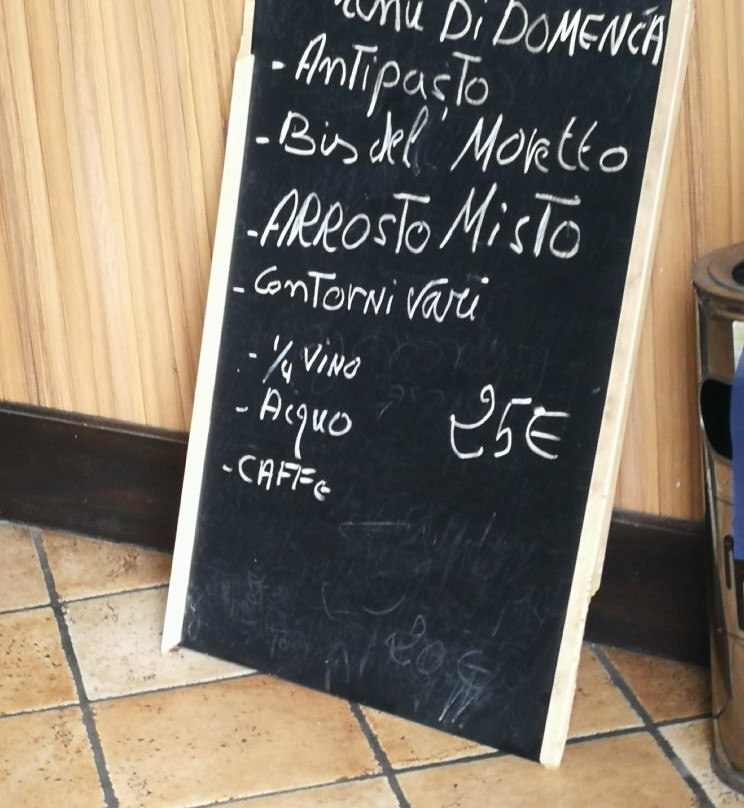 Menu Di DOMENCA
- AnTipasTo
- Bis del Moretto
- ARROSTO MisTo
- ConTorni Vari
- 1/4 VINO
- Acqua
25€
- CAFFE
20€